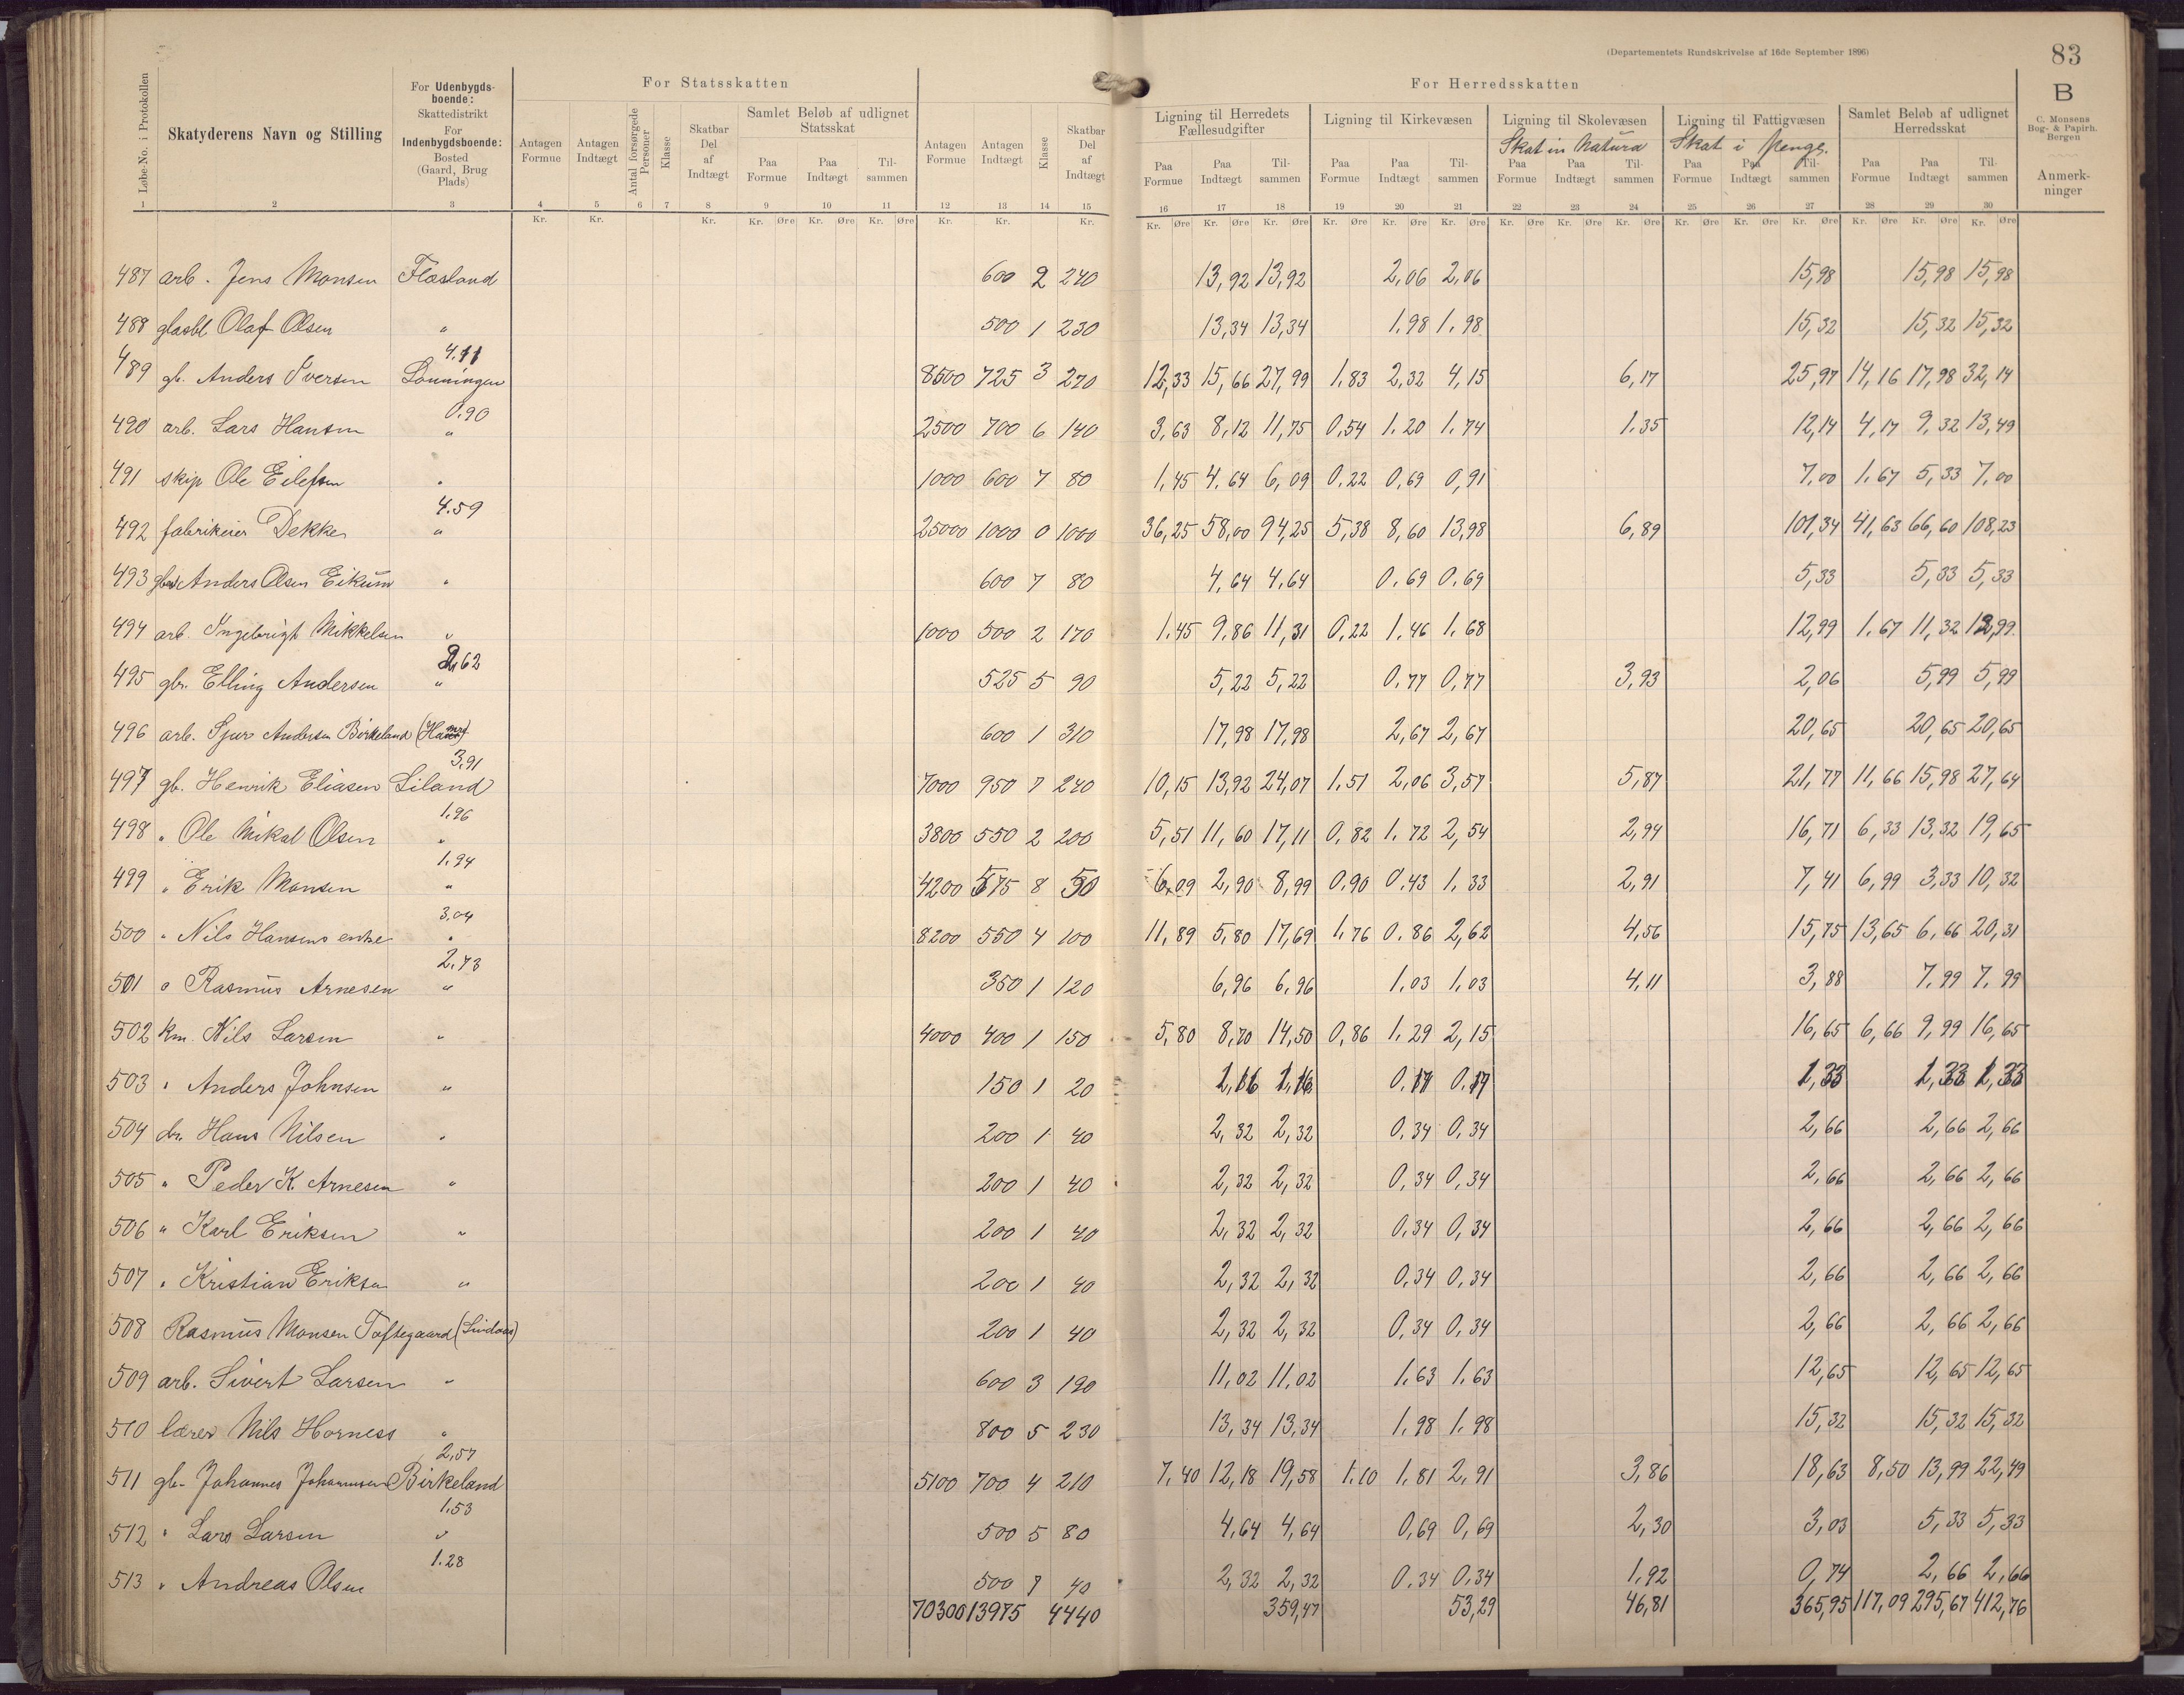 (Departementets Rundskrivelse af 16de September 1896)
83
For Statsskatten
For Herredsskatten
B
C. Monsens Bog- & Papirh. Bergen
Løbe-No. i Protokollen
Skatyderens Navn og Stilling
For Udenbygds-boende: Skattedistrikt For Indenbygdsboende: Bosted (Gaard, Brug Plads)
Antagen Formue
Antagen Indtægt
Antal forsørgede Personer
Klasse
Skatbar Del af Indtægt
Samlet Beløb af udlignet Statsskat
Paa Formue
Paa Indtægt
Til-sammen
Antagen Formue
Antagen Indtægt
Klasse
Skatbar Del af Indtægt
Ligning til Herredets Fællesudgifter
Paa Formue
Paa Indtægt
Til-sammen
Ligning til Kirkevæsen
Paa Formue
Paa Indtægt
Til-sammen
Ligning til Skolevæsen
Skat in Natura
Paa Formue
Paa Indtægt
Til-sammen
Ligning til Fattigvæsen
Skat i Penge.
Paa Formue
Paa Indtægt
Til-sammen
Samlet Beløb af udlignet Herredsskat
Paa Formue
Paa Indtægt
Til-sammen
Anmerk-ninger
1 2 3 4 5 6 7 8 9 10 11 12 13 14 15 16 17 18 19 20 21 22 23 24 25 26 27 28 29 30
Kr. Kr. Kr. Kr. Øre Kr. Øre Kr. Øre Kr. Kr. Kr. Kr. Øre Kr. Øre Kr. Øre Kr. Øre Kr. Øre Kr. Øre Kr. Øre Kr. Øre Kr. Øre Kr. Øre Kr. Øre Kr. Øre Kr. Øre Kr. Øre Kr. Øre
487 arb. Jens Monsen Flasland 600 2 240 13,92 13,92 2,06 2,06 15,98 15,98 15,98
488 glasbl Olaf Olsen " 500 1 230 13,34 13,34 1,98 1,98 15,32 15,32 15,32
4.11
489 gb. Anders Iversen Lønningen 8500 725 3 270 12,33 15,66 27,99 1,83 2,32 4,15 6,17 25,97 14,16 17,98 32,14
0.90
490 arb. Lars Hansen " 2500 700 6 140 3,63 8,12 11,75 0,54 1.20 1.74 1.35 12,14 4,17 9,32 13,49
491 skip Ole Eilefsen " 1000 600 7 80 1,45 4,64 6,09 0,22 0,69 0,91 7,00 1,67 5,33 7,00
4.59
492 fabrikeier Dekke " 25000 1000 0 1000 36,25 58,00 94,25 5,38 8,60 13,98 6,89 101,34 41,63 66,60 108,23
493 Anders Olsen Eikum " 600 7 80 4,64 4,64 0,69 0,69 5,33 5,33 5,33
494 arb. Ingebrigt Mikkelsen " 1000 500 2 170 1,45 9,86 11,31 0,22 1,46 1,68 12,99 1,67 11,32 12,99
2,62
495 gbr. Elling Andersen " 525 5 90 5,22 5,22 0,77 0,77 3,93 2,06 5,99 5,99
496 arb. Sjur Andersen Birkeland 600 1 310 17,98 17,98 2,67 2,67 20,65 20,65 20,65
3,91
497 gb. Henrik Eliasen Liland 7000 950 7 240 10,15 13,92 24,07 1,51 2,06 3,57 5,87 21,77 11,66 15,98 27,64
1.96
498 " Ole Mikal Olsen " 3800 550 2 200 5,51 11,60 17,11 0,82 1,72 2,54 2,94 16,71 6,33 13,32 19,65
1.94
499 " Erik Monsen " 4200 575 8 50 6,09 2,90 8,99 0,90 0,43 1,33 2,91 7,41 6,99 3,33 10,32
3,04
500 " Nils Hansens enke " 8200 550 4 100 11,89 5,80 17,69 1,76 0,86 2,62 4,56 15,75 13,65 6,66 20,31
2.73
501 " Rasmus Arnesen " 350 1 120 6,96 6,96 1,03 1,03 4,11 3,88 7,99 7,99
502 km. Nils Larsen " 4000 400 1 150 5,80 8,70 14,50 0,86 1,29 2,15 16,65 6,66 9,99 16,65
503 " Anders Johnsen " 150 1 20 1,16 1,16 0,17 0,17 1,33 1,33 1,33
504 dr. Hans Nilsen " 200 1 40 2,32 2,32 0,34 0,34 2,66 2,66 2,66
505 " Peder K. Arnesen " 200 1 40 2,32 2,32 0,34 0,34 2,66 2,66 2,66
506 " Karl Eriksen " 200 1 40 2,32 2,32 0,34 0,34 2,66 2,66 2,66
507 " Kristian Eriksen " 200 1 40 2,32 2,32 0,34 0,34 2,66 2,66 2,66
508 Rasmus Monsen Toftegaard (Lindaas) 200 1 40 2,32 2,32 0,34 0,34 2,66 2,66 2,66
509 arb. Sivert Larsen " 600 3 190 11,02 11,02 1,63 1,63 12,65 12,65 12,65
510 lærer Nils Horness " 800 5 230 13,34 13,34 1,98 1,98 15,32 15,32 15,32
2,57
511 gb. Johannes Johannesen Birkeland 5100 700 4 210 7,40 12,18 19,58 1,10 1,81 2,91 3,86 18,63 8,50 13,99 22,49
1.53
512 " Lars Larsen " 500 5 80 4,64 4,64 0,69 0,69 2,30 3,03 5,33 5,33
1.28
513 " Andreas Olsen 500 7 40 2,32 2,32 0,34 0,34 1,92 0,74 2,66 2,66
70300 13975 4440 359,47 53,29 46,81 365,95 117,09 295,67 412,76